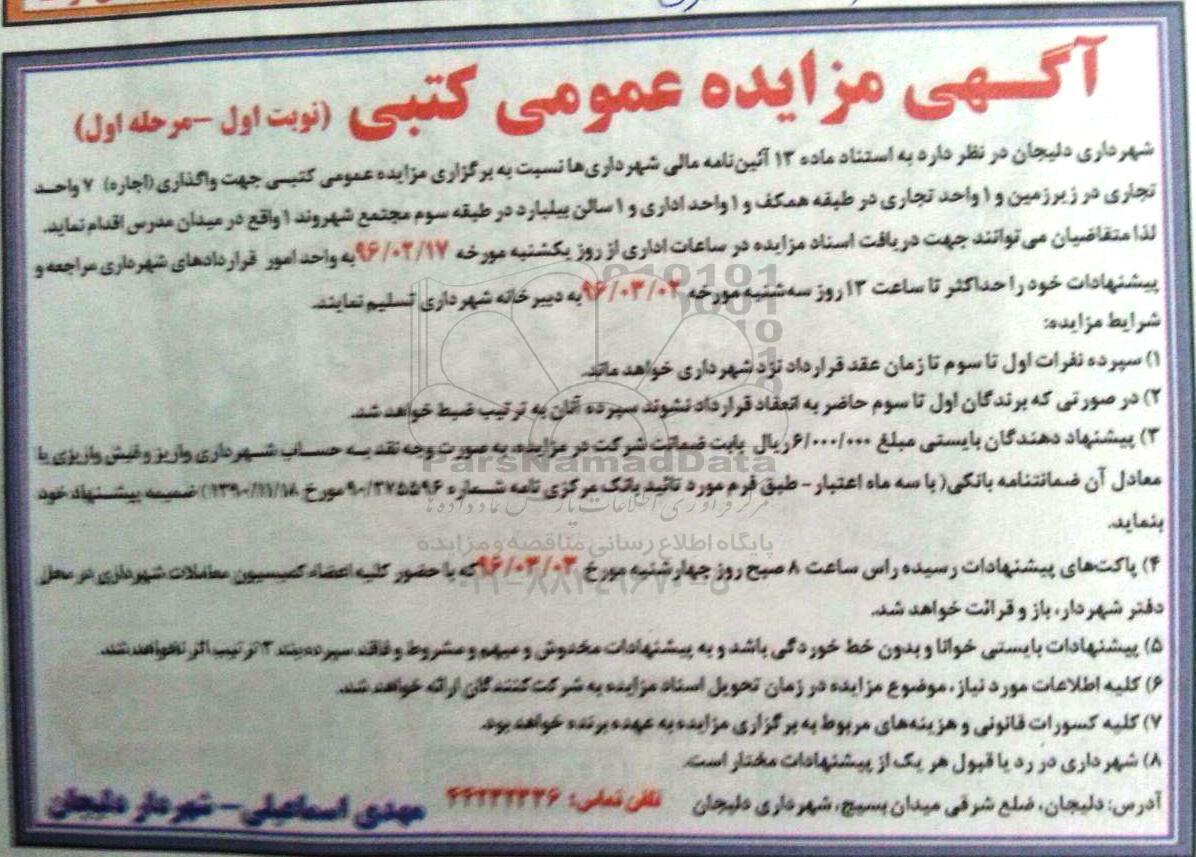 آگهی مزایده عمومی کتبی (نوبت اول -مرحله اول)
شهرداری دلیجان در نظر دارد به استناد ماده ۱۳ آئین‌نامه مالی شهرداری‌ها نسبت به برگزاری مزایده عمومی کتبی جهت واگذاری (اجاره) ۷ واحد
تجاری در زیرزمین و ۱ واحد تجاری در طبقه همکف و ۱ واحد اداری و ۱ سالن بیلیارد در طبقه سوم مجتمع شهروند ۱ واقع در میدان مدرس اقدام نماید.
لذا متقاضیان می‌توانند جهت دریافت اسناد مزایده در ساعات اداری از روز یکشنبه مورخه ۹۶/۰۲/۱۷ به واحد امور قراردادهای شهرداری مراجعه و
پیشنهادات خود را حداکثر تا ساعت ۱۳ روز سه‌شنبه مورخه ۹۶/۰۳/۰۲ به دبیرخانه شهرداری تسلیم نمایند.
شرایط مزایده:
۱) سپرده نفرات اول تا سوم تا زمان عقد قرارداد نزد شهرداری خواهد ماند.
۲) در صورتی که برندگان اول تا سوم حاضر به انعقاد قرارداد نشوند سپرده آنان به ترتیب ضبط خواهد شد.
۳) پیشنهاد دهندگان بایستی مبلغ ۶/۰۰۰/۰۰۰ ریال بابت ضمانت شرکت در مزایده، به صورت وجه نقد به حساب شهرداری واریز و فیش واریزی یا
معادل آن ضمانتنامه بانکی( با سه ماه اعتبار - طبق فرم مورد تائید بانک مرکزی نامه شماره ۹۰/۲۷۵۵۹۶ مورخ ۱۳۹۰/۱۱/۱۸) ضمیمه پیشنهاد خود
بنماید.
۴) پاکت‌های پیشنهادات رسیده راس ساعت ۸ صبح روز چهارشنبه مورخ ۹۶/۰۳/۰۳ که با حضور کلیه اعضاء کمیسیون معاملات شهرداری در محل
دفتر شهردار، باز و قرائت خواهد شد.
۵) پیشنهادات بایستی خوانا و بدون خط خوردگی باشد و به پیشنهادات مخدوش و مبهم و مشروط و فاقد سپرده بند ۳ ترتیب اثر نخواهند شد.
۶) کلیه اطلاعات مورد نیاز، موضوع مزایده در زمان تحویل اسناد مزایده به شرکت‌کنندگان ارائه خواهد شد.
۷) کلیه کسورات قانونی و هزینه‌های مربوط به برگزاری مزایده به عهده برنده خواهد بود.
۸) شهرداری در رد یا قبول هر یک از پیشنهادات مختار است.
آدرس: دلیجان، ضلع شرقی میدان بسیج، شهرداری دلیجان تلفن تماس: ۴۴۲۳۲۳۳۶
مهدی اسماعیلی- شهردار دلیجان
ParsNamadData
پایگاه اطلاع رسانی مناقصه و مزایده